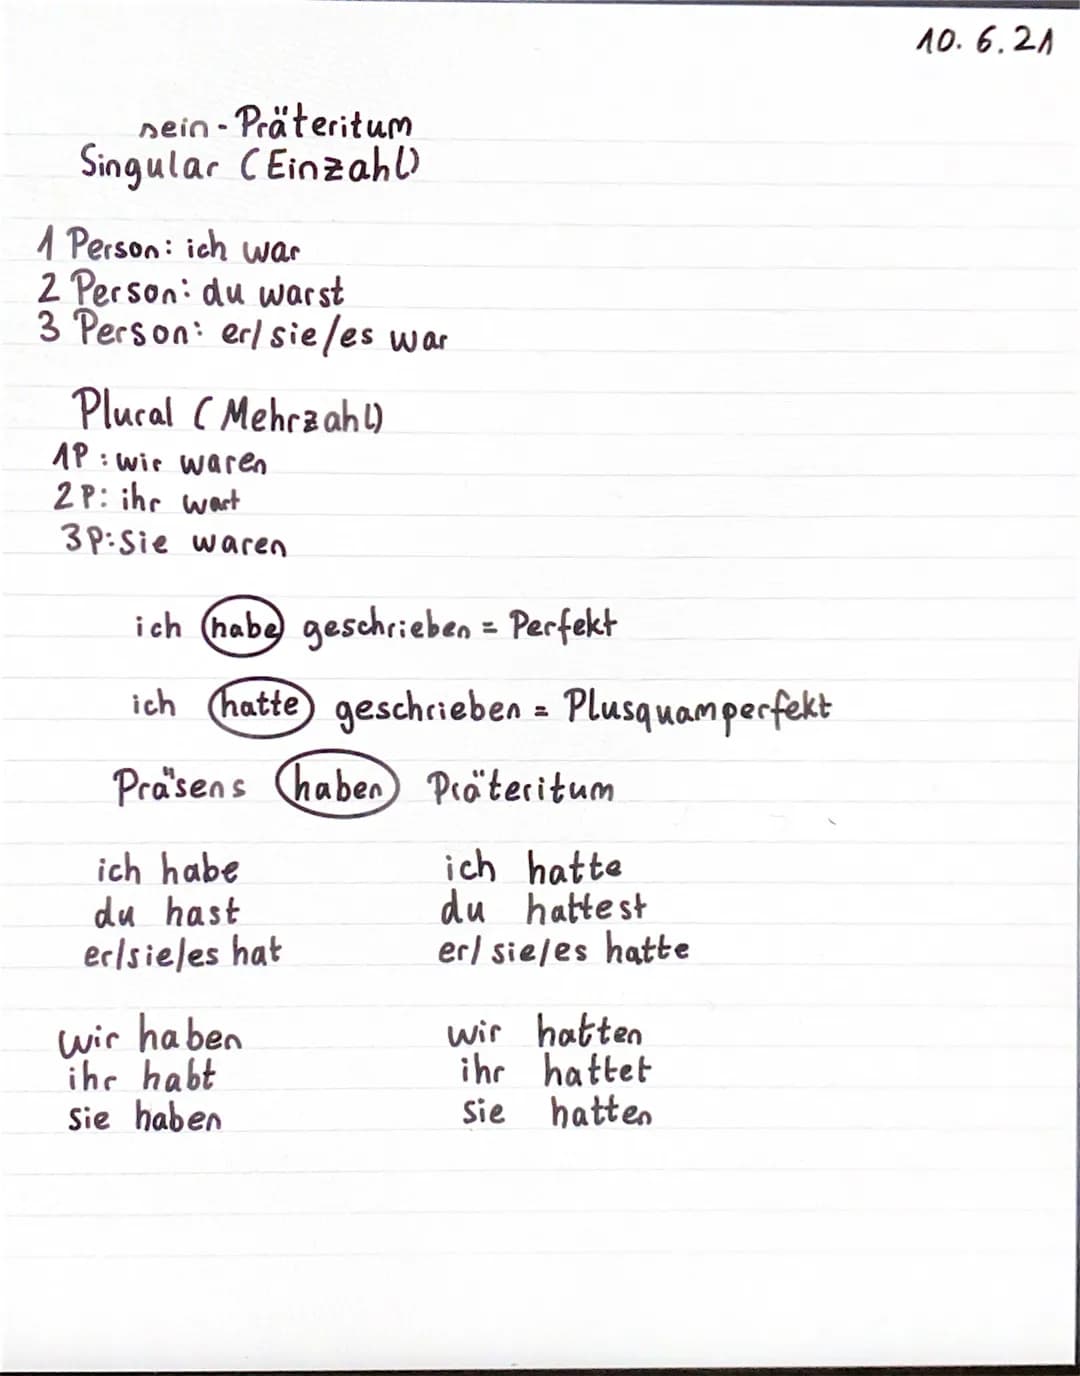 10. 6. 21
sein - Präteritum
Singular (Einzahl)
1 Person: ich war
2 Person: du warst
3 Person: er/ sie/es war
Plural (Mehrzahl)
1P: wir waren
2P: ihr wart
3P: Sie waren
ich habe geschrieben = Perfekt
ich hatte geschrieben = Plusquamperfekt
Präsens haben Präteritum
ich habe ich hatte
du hast du hattest
er/sie/es hat er/ sie/es hatte
wir haben wir hatten
ihr habt ihr hattet
sie haben sie hatten